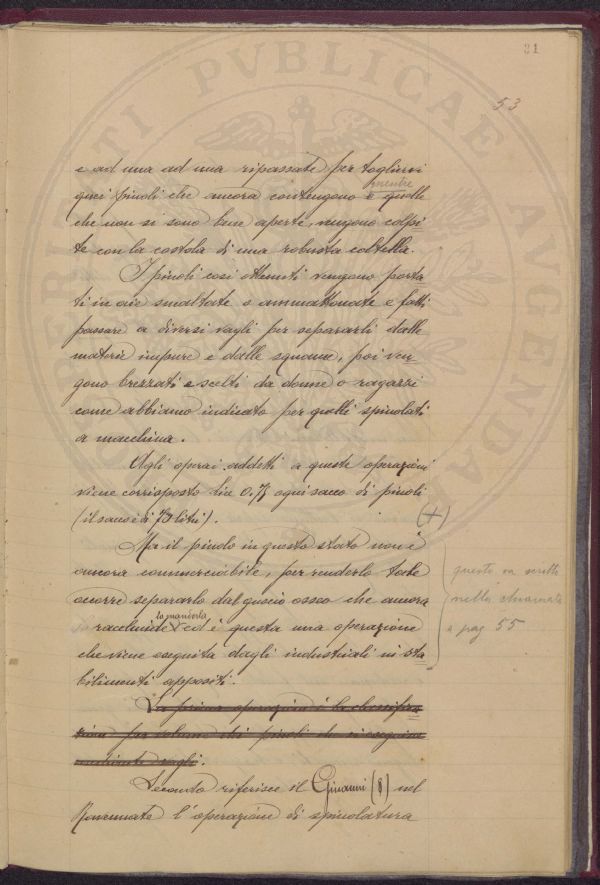 31
53
e ad una ad una ripassate per togliervi
quei pinoli che ancora contengono e quelle
mentre
che non si sono bene aperte, vengono colpi
te con la costola di una robusta coltella.
I pinoli così ottenuti vengono porta
ti in aie smaltate o ammattonate e fatti
passare a diversi vagli per separarli dalle
materie impure e dalle squame, poi ven
gono brezzati e scelti da donne o ragazzi
come abbiamo indicato per quelli spinolati
a macchina.
Agli operai addetti a queste operazioni
viene corrisposto Lire 0.75 ogni sacco di pinoli
(il sacco è di 73 litri).
(+)
Ma il pinolo in questo stato non è
ancora commerciabile, per renderlo tale
occorre separarlo dal guscio osseo che ancora
racchiude la mandorla ed è questa una operazione
che viene eseguita dagli industriali in sta
bilimenti appositi.
questo va scritto
nella chiamata
a pag 55
La prima operazione è la classifica
zione per volume dei pinoli che si eseguisce
mediante vagli.
Secondo riferisce il Ginanni (8) nel
Ravennate l'operazione di spinolatura
PVBLICAE
AVGENDAE